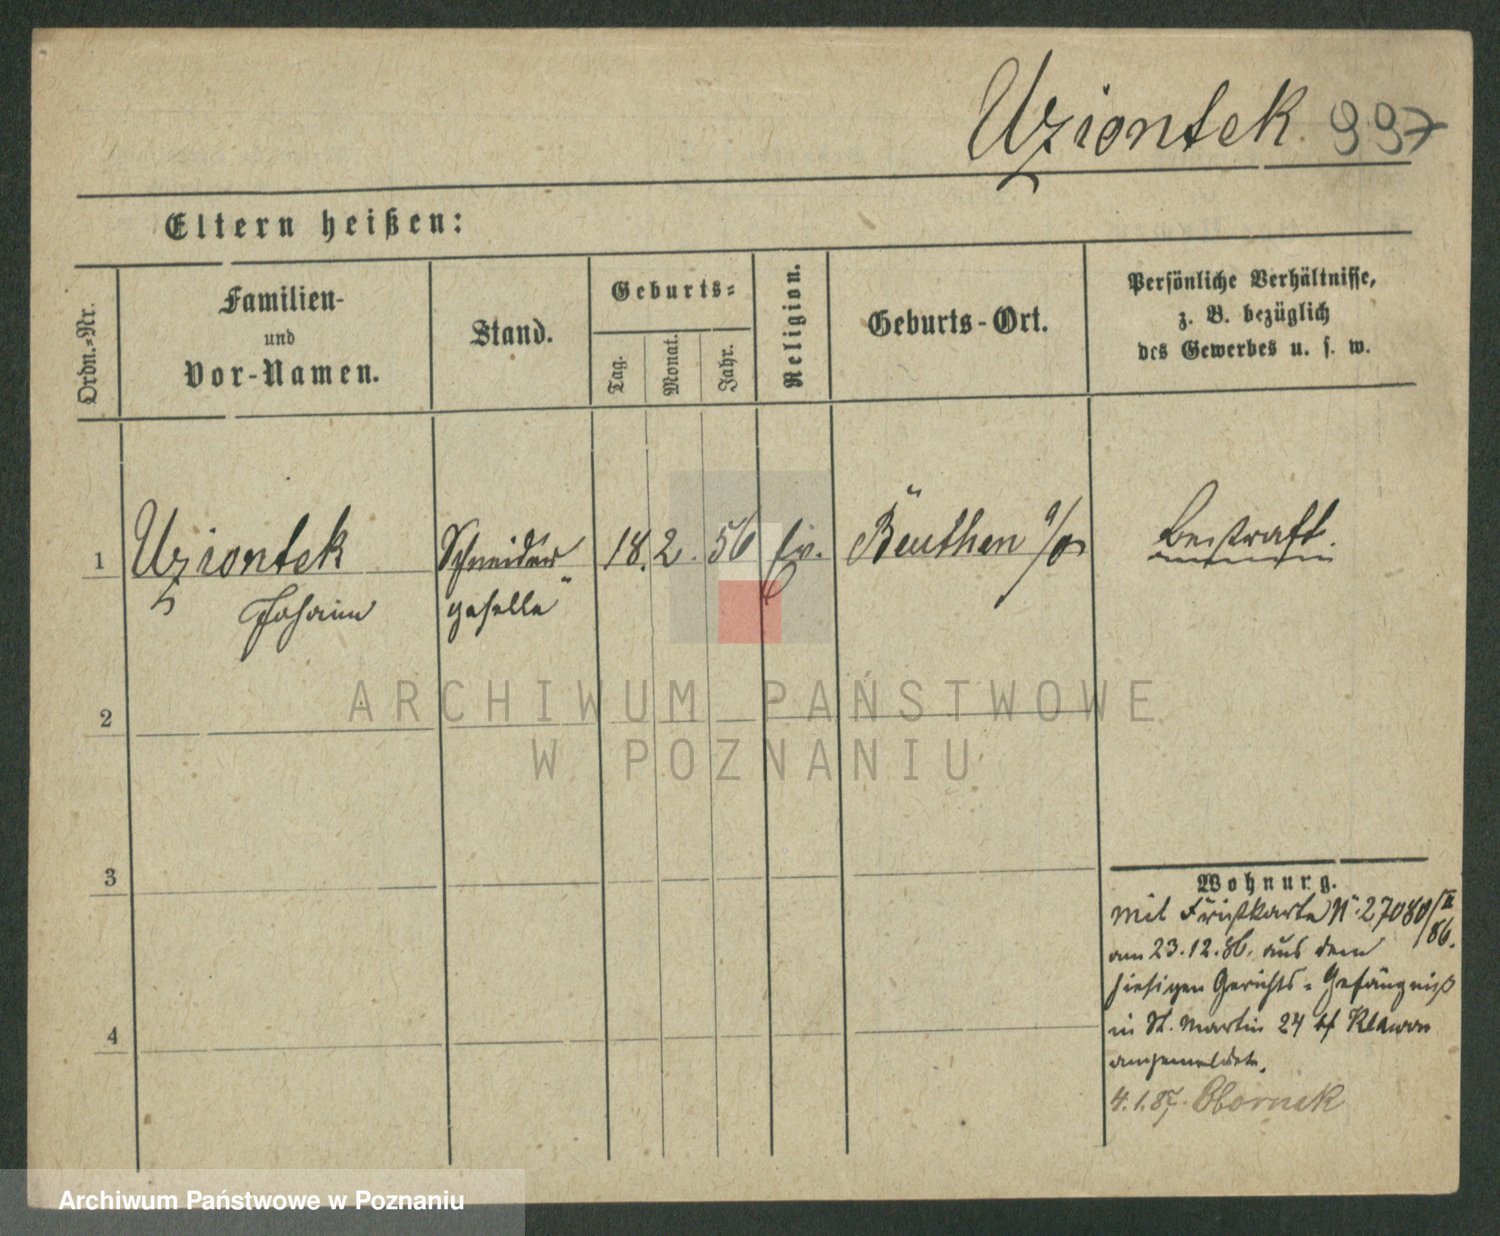 Uziontek 997
Eltern heißen:
Ordn.-Nr.
Familien-
und
Vor-Namen.
Stand.
Geburts-
Tag.
Monat.
Jahr.
Religion.
Geburts-Ort.
Persönliche Verhältnisse,
z. B. bezüglich
des Gewerbes u. s. w.
1 Uziontek Schneider 18. 2. 56 Ev. Beuthen a/O bestraft.
Johann geselle
2
3
4
Wohnung.
Mit Fristkarte No 27080/II 86.
am 23.12.86. aus dem
hiesigen Gerichts-Gefängniß
in St. Martin 24 bf
angemeldet.
4.1.87. Obornik
ARCHIWUM PAŃSTWOWE
W POZNANIU
Archiwum Państwowe w Poznaniu